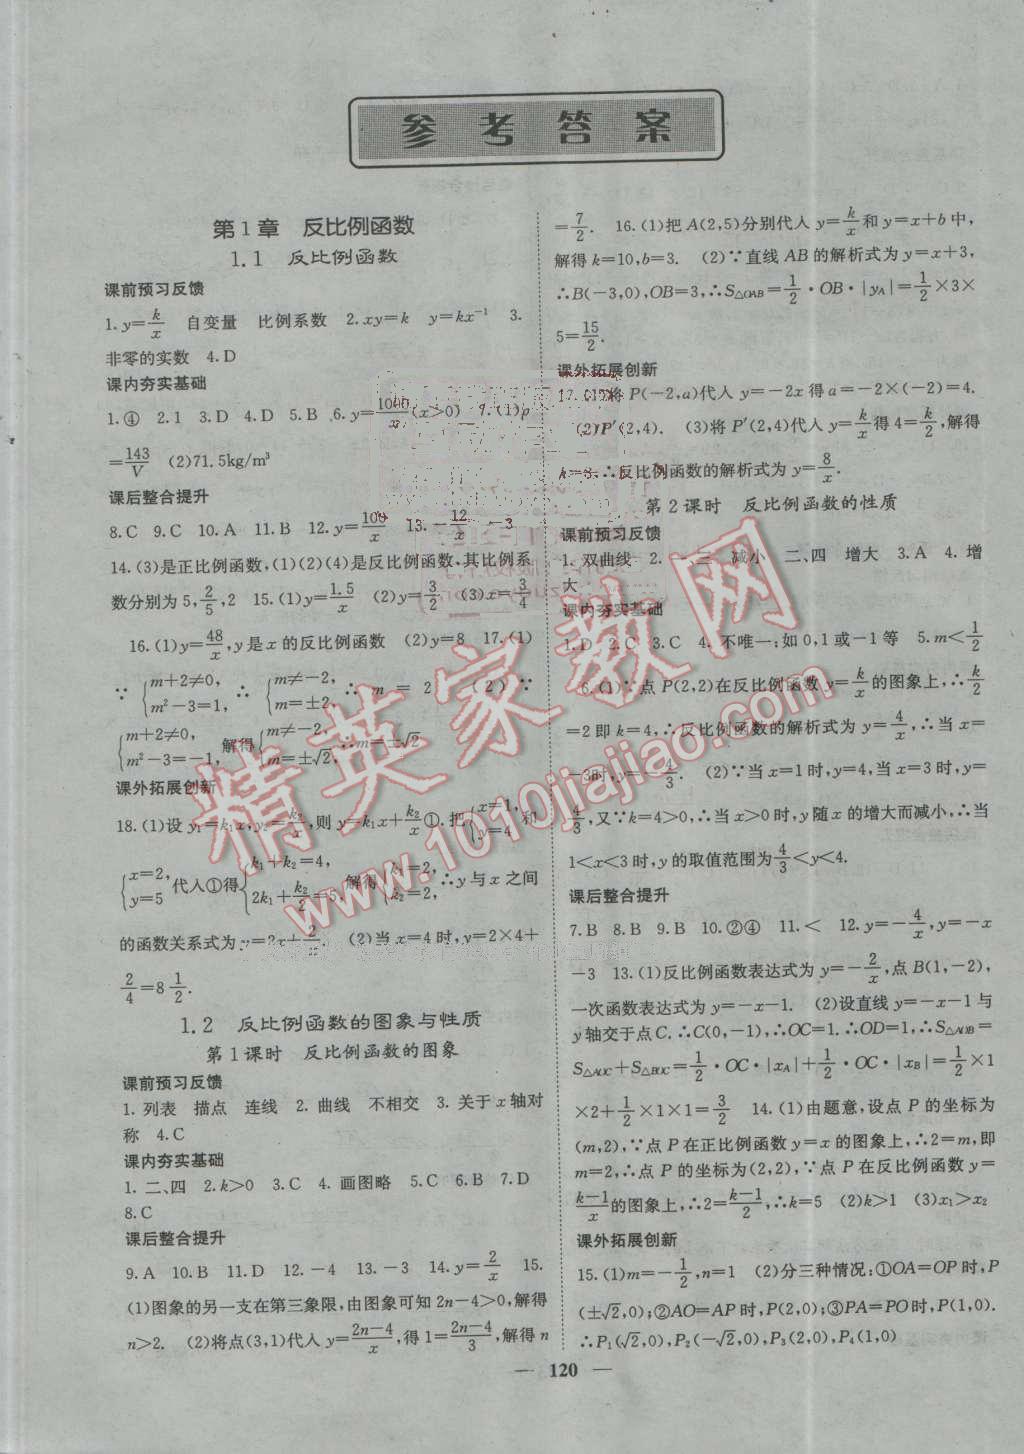 参考答案
第1章 反比例函数
1.1 反比例函数
课前预习反馈
1. y=k/x 自变量 比例系数 2. xy=k y=kx⁻¹ 3.
非零的实数 4. D
课内夯实基础
1. ④ 2. 1 3. D 4. D 5. B 6. y=1000/x(x>0) 7. (1)ρ
=143/V (2)71.5kg/m³
课后整合提升
8. C 9. C 10. A 11. B 12. y=100/x 13. -12/x -3
14. (3)是正比例函数,(1)(2)(4)是反比例函数,其比例系
数分别为5,2/5,2 15. (1)y=1.5/x (2)y=3/2 (3)x=3/4
16. (1)y=48/x,y是x的反比例函数 (2)y=8 17. (1)
∵ {m+2≠0, m²-3=1, ∴ {m≠-2, m=±2, ∴ m = 2 (2) ∵
{m+2≠0, m²-3=-1, 解得{m≠-2, m=±√2, ∴m=±√2
课外拓展创新
18. (1)设y₁=k₁x,y₂=k₂/x,则y=k₁x+k₂/x①. 把{x=1, y=4 和
{x=2, y=5 代入①得{k₁+k₂=4, 2k₁+k₂/2=5, 解得 ∴y与x之间
的函数关系式为y=2x+2/x. (2)当x=4时,y=2×4+
2/4=8 1/2.
1.2 反比例函数的图象与性质
第1课时 反比例函数的图象
课前预习反馈
1. 列表 描点 连线 2. 曲线 不相交 3. 关于x轴对
称 4. C
课内夯实基础
1. 二、四 2. k>0 3. C 4. 画图略 5. C 6. B 7. D
8. C
课后整合提升
9. A 10. B 11. D 12. -4 13. -3 14. y=2/x 15.
(1)图象的另一支在第三象限,由图象可知2n-4>0,解得
n>2. (2)将点(3,1)代入y=(2n-4)/x,得1=(2n-4)/3,解得n
=7/2. 16. (1)把A(2,5)分别代入y=k/x和y=x+b中,
解得k=10,b=3. (2)∵直线AB的解析式为y=x+3,
∴B(-3,0),OB=3,∴S△OAB=1/2·OB·|yA|=1/2×3×
5=15/2.
课外拓展创新
17. (1)将P(-2,a)代入y=-2x得a=-2×(-2)=4.
(2)P′(2,4). (3)将P′(2,4)代入y=k/x得4=k/2,解得
k=8,∴反比例函数的解析式为y=8/x.
第2课时 反比例函数的性质
课前预习反馈
1. 双曲线 2. 一、三 减小 二、四 增大 3. A 4. 增
大
课内夯实基础
1. D 2. C 3. C 4. 不唯一;如0,1或-1等 5. m<1/2
6. (1)∵点P(2,2)在反比例函数y=k/x的图象上,∴k/2
=2即k=4,∴反比例函数的解析式为y=4/x,∴当x=
-3时,y=-4/3. (2)∵当x=1时,y=4,当x=3时,y=
4/3,又∵k=4>0,∴当x>0时,y随x的增大而减小,∴当
1<x<3时,y的取值范围为4/3<y<4.
课后整合提升
7. B 8. B 9. B 10. ②④ 11. < 12. y=-4/x,y=-x
-3 13. (1)反比例函数表达式为y=-2/x,点B(1,-2),
一次函数表达式为y=-x-1. (2)设直线y=-x-1与
y轴交于点C. ∴C(0,-1),∴OC=1. ∴OD=1,∴S△AOB=
S△AOC+S△BOC=1/2·OC·|xA|+1/2·OC·|xB|=1/2×1
×2+1/2×1×1=3/2 14. (1)由题意,设点P的坐标为
(m,2),∵点P在正比例函数y=x的图象上,∴2=m,即
m=2,∴点P的坐标为(2,2),∵点P在反比例函数y=
(k-1)/x的图象上,∴2=(k-1)/2,∴k=5 (2)k>1 (3)x₁>x₂
课外拓展创新
15. (1)m=-1/2,n=1 (2)分三种情况:①OA=OP时,P
(±√2,0);②AO=AP时,P(2,0);③PA=PO时,P(1,0).
∴P₁(√2,0),P₂(-√2,0),P₃(2,0),P₄(1,0)
120
精英家教网
www.1010jiajiao.com